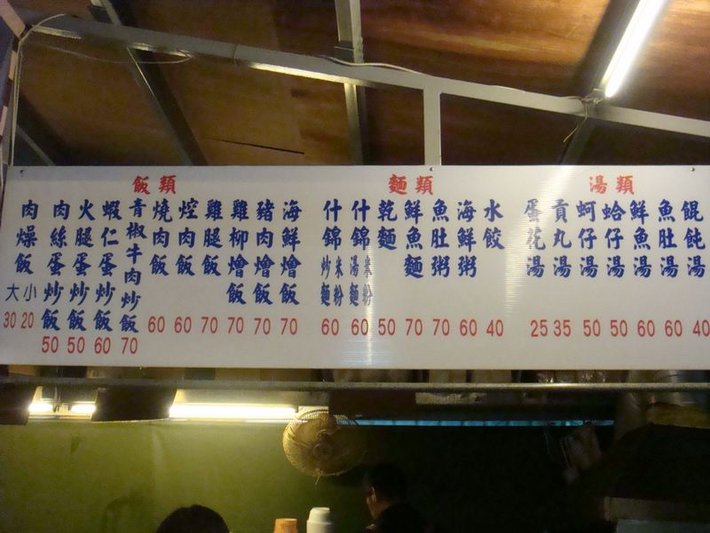 飯類
肉燥飯
大 小
30 20
肉絲蛋炒飯 50
火腿蛋炒飯 50
蝦仁蛋炒飯 60
青椒牛肉炒飯 70
燒肉飯 60
焢肉飯 60
雞腿飯 70
雞柳燴飯 70
豬肉燴飯 70
海鮮燴飯 70
麵類
什錦炒麵 米粉 60
什錦湯麵 米粉 60
乾麵 50
鮮魚麵 70
魚肚粥 70
海鮮粥 60
水餃 40
湯類
蛋花湯 25
貢丸湯 35
蚵仔湯 50
蛤仔湯 50
鮮魚湯 60
魚肚湯 60
餛飩湯 40